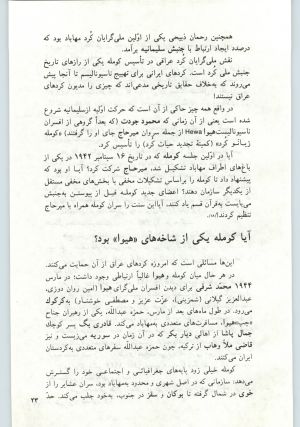 همچنین رحمان ذبیحی یکی از اوّلین ملی‌گرایان کُرد مهاباد بود که
درصدد ایجاد ارتباط با جنبش سلیمانیه برآمد.
نقش ملی‌گرایان کرد عراقی در تأسیس کومله یکی از رازهای تاریخ
جنبش ملی کُرد است. کردهای ایرانی برای تهییج ناسیونالیسم تا آنجا پیش
می‌روند که به‌خلاف حقایق تاریخی مدعی‌اند که چیزی را مدیون کردهای
عراق نیستند!
در واقع همه چیز حاکی از آن است که حرکت اوّلیه ازسلیمانیه شروع
شده است یعنی از آن زمانی که محمود جودت (که بعداً گروهی از افسران
ناسیونالیست‌هیوا Hewa از جمله سروان میرحاج جای او را گرفتند) «کومله
ژیانـه و کرد» (کمیتهٔ تجدید حیات کرد) را تأسیس کرد.
آیا در اولین جلسه کومله که در تاریخ ۱۶ سپتامبر ۱۹۴۲ در یکی از
باغ‌های اطراف مهاباد تشکیل شد، میرحاج شرکت کرد؟ آیـا او بود که
پیشنهاد داد تا کومله را براساس تشکیلات مخفی با بخش‌های مخفی مستقل
از یکدیگر سازمان دهند؟ اعضای جدید کومله قبـل از پیوستن به‌جنبش
می‌بایست به‌قرآن قسم یاد کنند. آیااین سنت را سران کومله همراه با میرحاج
تنظیم کردند؟
آیا کومله یکی از شاخه‌های «هیوا» بود؟
این‌ها مسائلی است که امروزه کردهای عراق از آن حمایت می‌کنند.
در هر حال میان کومله وهیوا غالباً ارتباطی وجود داشت: در مارس
۱۹۴۴ محمّد شرفی برای دیدن افسران ملی‌گرای هیوا (امین روان دوزی،
عبدالعزیز گیلانی (شمزینی)، عزت عزیز و مصطفی خوشناو) به‌کرکوک
رفت. در طول ماه‌های بعد از مارس، حمزه عبدالله، یکی از رهبران جناح
چپ«هیوا»، مسافرت‌های متعددی به‌مهاباد می‌کند. قادری بگ پسر کوچک
جمال پاشا از اهالی دیار بکر که در آن زمان در سوریه می‌زیست و نیز
قاضی ملاّ وهاب از ترکیه، چون حمزه عبدالله سفرهای متعددی به‌کردستان
ایران می‌کنند.
کومله خیلی زود پایه‌های جغرافیائـی و اجتماعـی خود را گسترش
می‌دهد. سازمانی که در اصل شهری و محدود به‌مهاباد بود، سران عشایر را از
خوی در شمال گرفته تا بوکان و سقز در جنوب، به‌خود جلب می‌کند.
۲۳